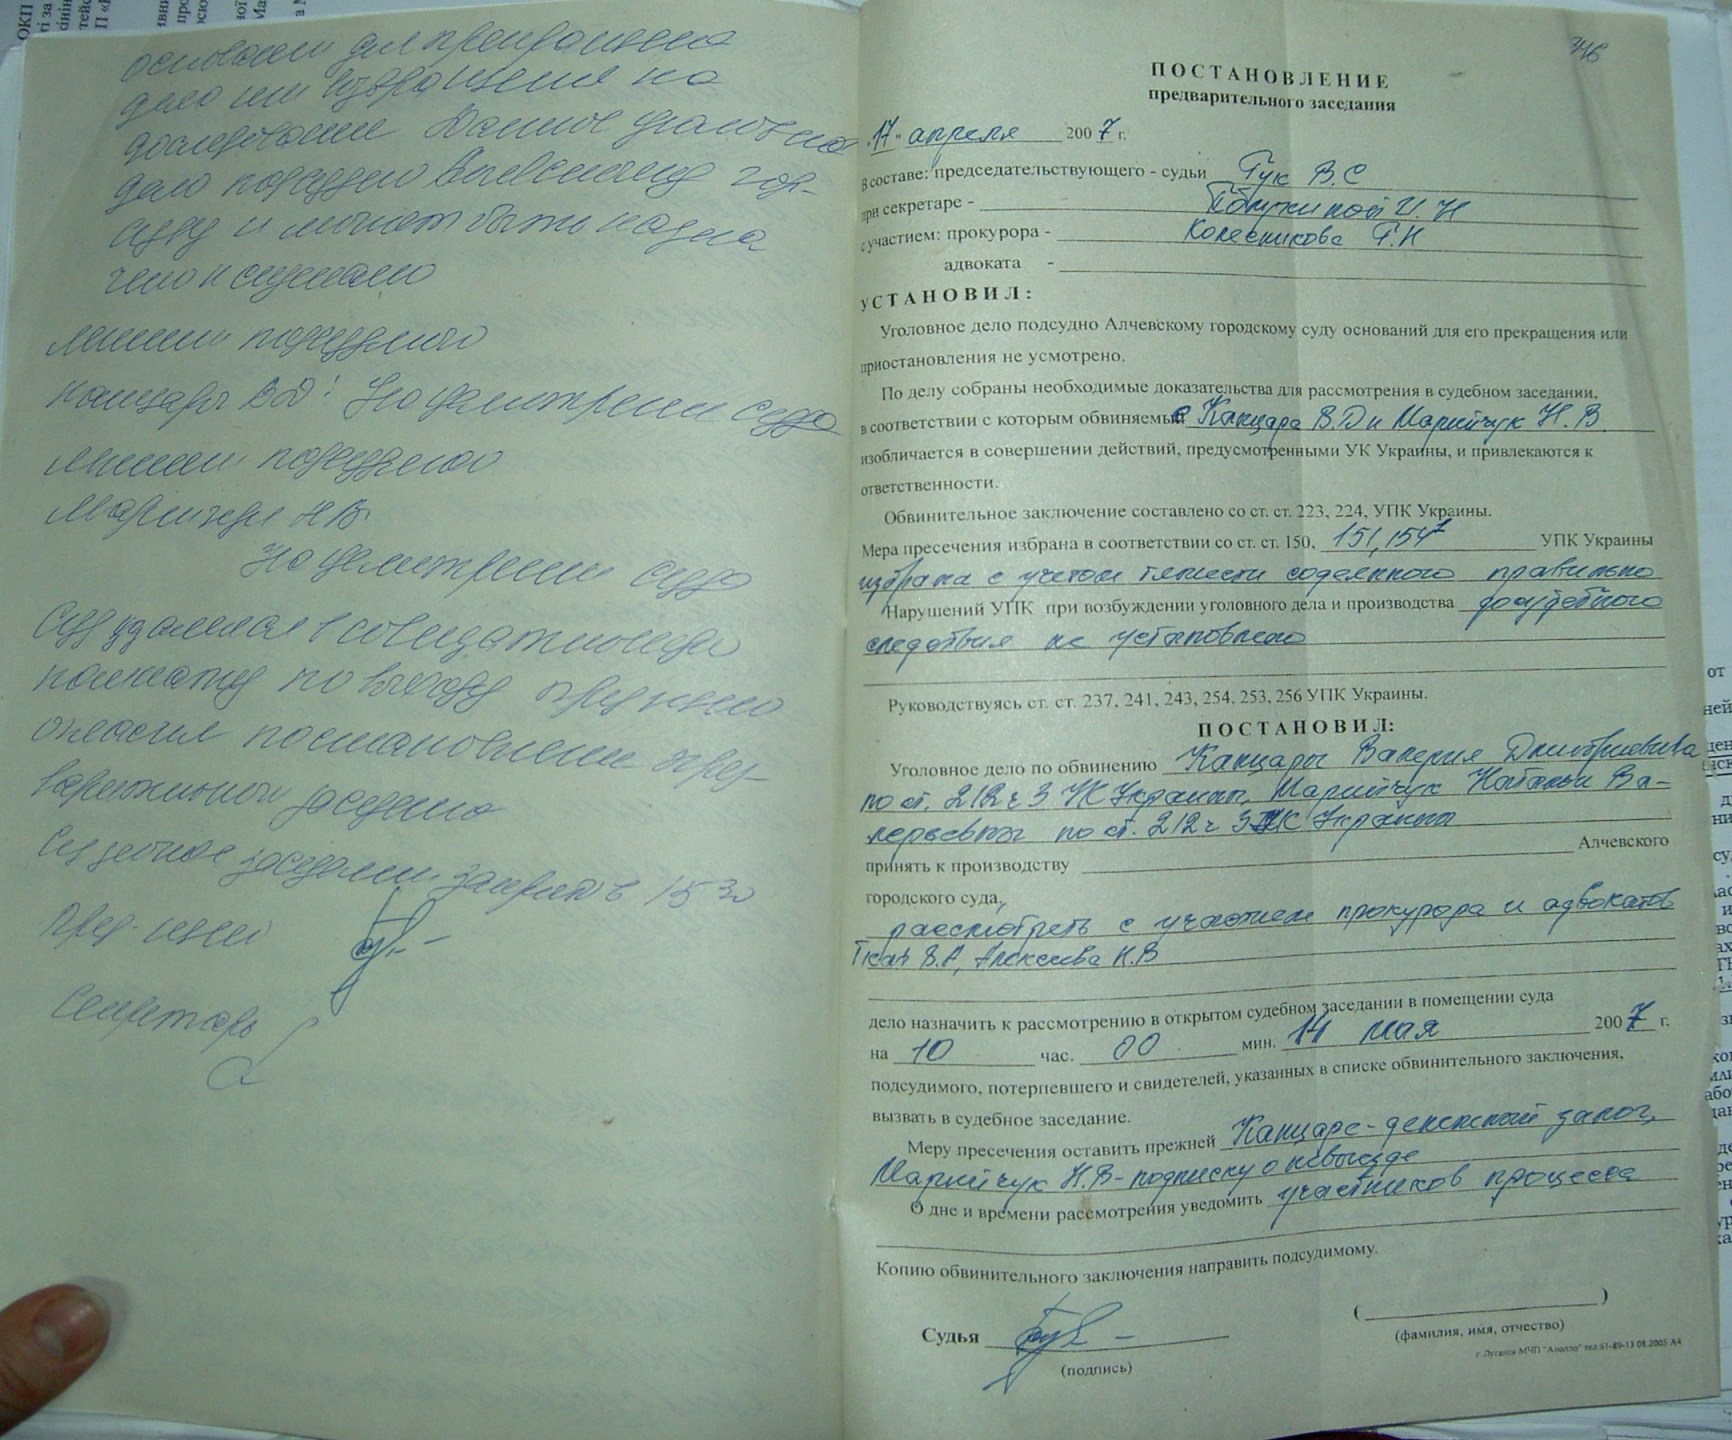 основани для прекращения
дела или возвращения на
доследование Данное уголовное
дело подсудно Алчевскому гор-
суду и может быть назна
чено к слушанию
мнение подсудимого
Канцара В.Д: На усмотрение суда
мнение подсудимого
Марийчук Н.В.
На усмотрение суда
Суд удалился в совещательную
комнату по выходу председ
огласил постановление пред-
варительного заседания
Судебное заседание закрыто в 15 30
Пред-
Секретарь
346
ПОСТАНОВЛЕНИЕ
предварительного заседания
"17" апреля 2007 г.
В составе: председательствующего - судьи Гук В.С
при секретаре - И.Н
с участием: прокурора - Колесникова Г.Н
адвоката -
УСТАНОВИЛ:
Уголовное дело подсудно Алчевскому городскому суду оснований для его прекращения или
приостановления не усмотрено.
По делу собраны необходимые доказательства для рассмотрения в судебном заседании,
в соответствии с которым обвиняемые Канцара В.Д и Марийчук Н.В.
изобличается в совершении действий, предусмотренными УК Украины, и привлекаются к
ответственности.
Обвинительное заключение составлено со ст. ст. 223, 224, УПК Украины.
Мера пресечения избрана в соответствии со ст. ст. 150, 151, 154¹ УПК Украины
избрана с учетом тяжести содеянного правильно
Нарушений УПК при возбуждении уголовного дела и производства досудебного
следствия не установлено
Руководствуясь ст. ст. 237, 241, 243, 254, 253, 256 УПК Украины.
ПОСТАНОВИЛ:
Уголовное дело по обвинению Канцары Валерия Дмитриевича
по ст. 212 ч 3 УК Украины, Марийчук Натальи Ва-
лерьевны по ст. 212 ч 3 УК Украины
принять к производству Алчевского
городского суда,
рассмотреть с участием прокурора и адвокатов
Ткач В.А, Алексеева К.В
дело назначить к рассмотрению в открытом судебном заседании в помещении суда
на 10 час. 00 мин. 14 мая 2007 г.
подсудимого, потерпевшего и свидетелей, указанных в списке обвинительного заключения,
вызвать в судебное заседание.
Меру пресечения оставить прежней Канцаре - денежный залог,
Марийчук Н.В - подписку о невыезде
О дне и времени рассмотрения уведомить участников процесса
Копию обвинительного заключения направить подсудимому.
Судья
( )
(подпись)
(фамилия, имя, отчество)
г. Луганск МЧП "Аполло" тел 51-89-13 08.2005 А4